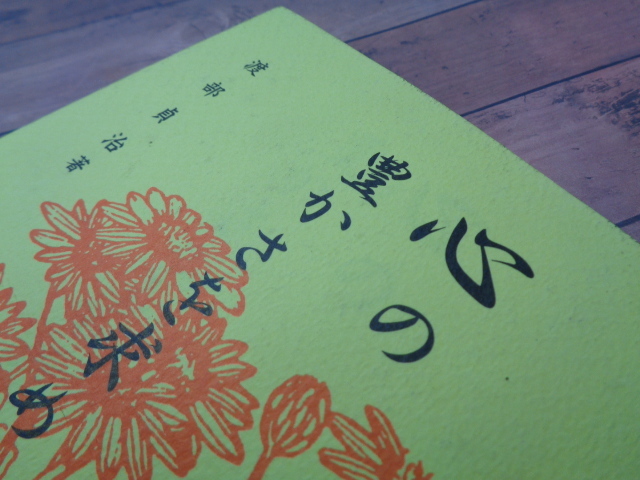 心の
豊かさを求め
渡部貞治著